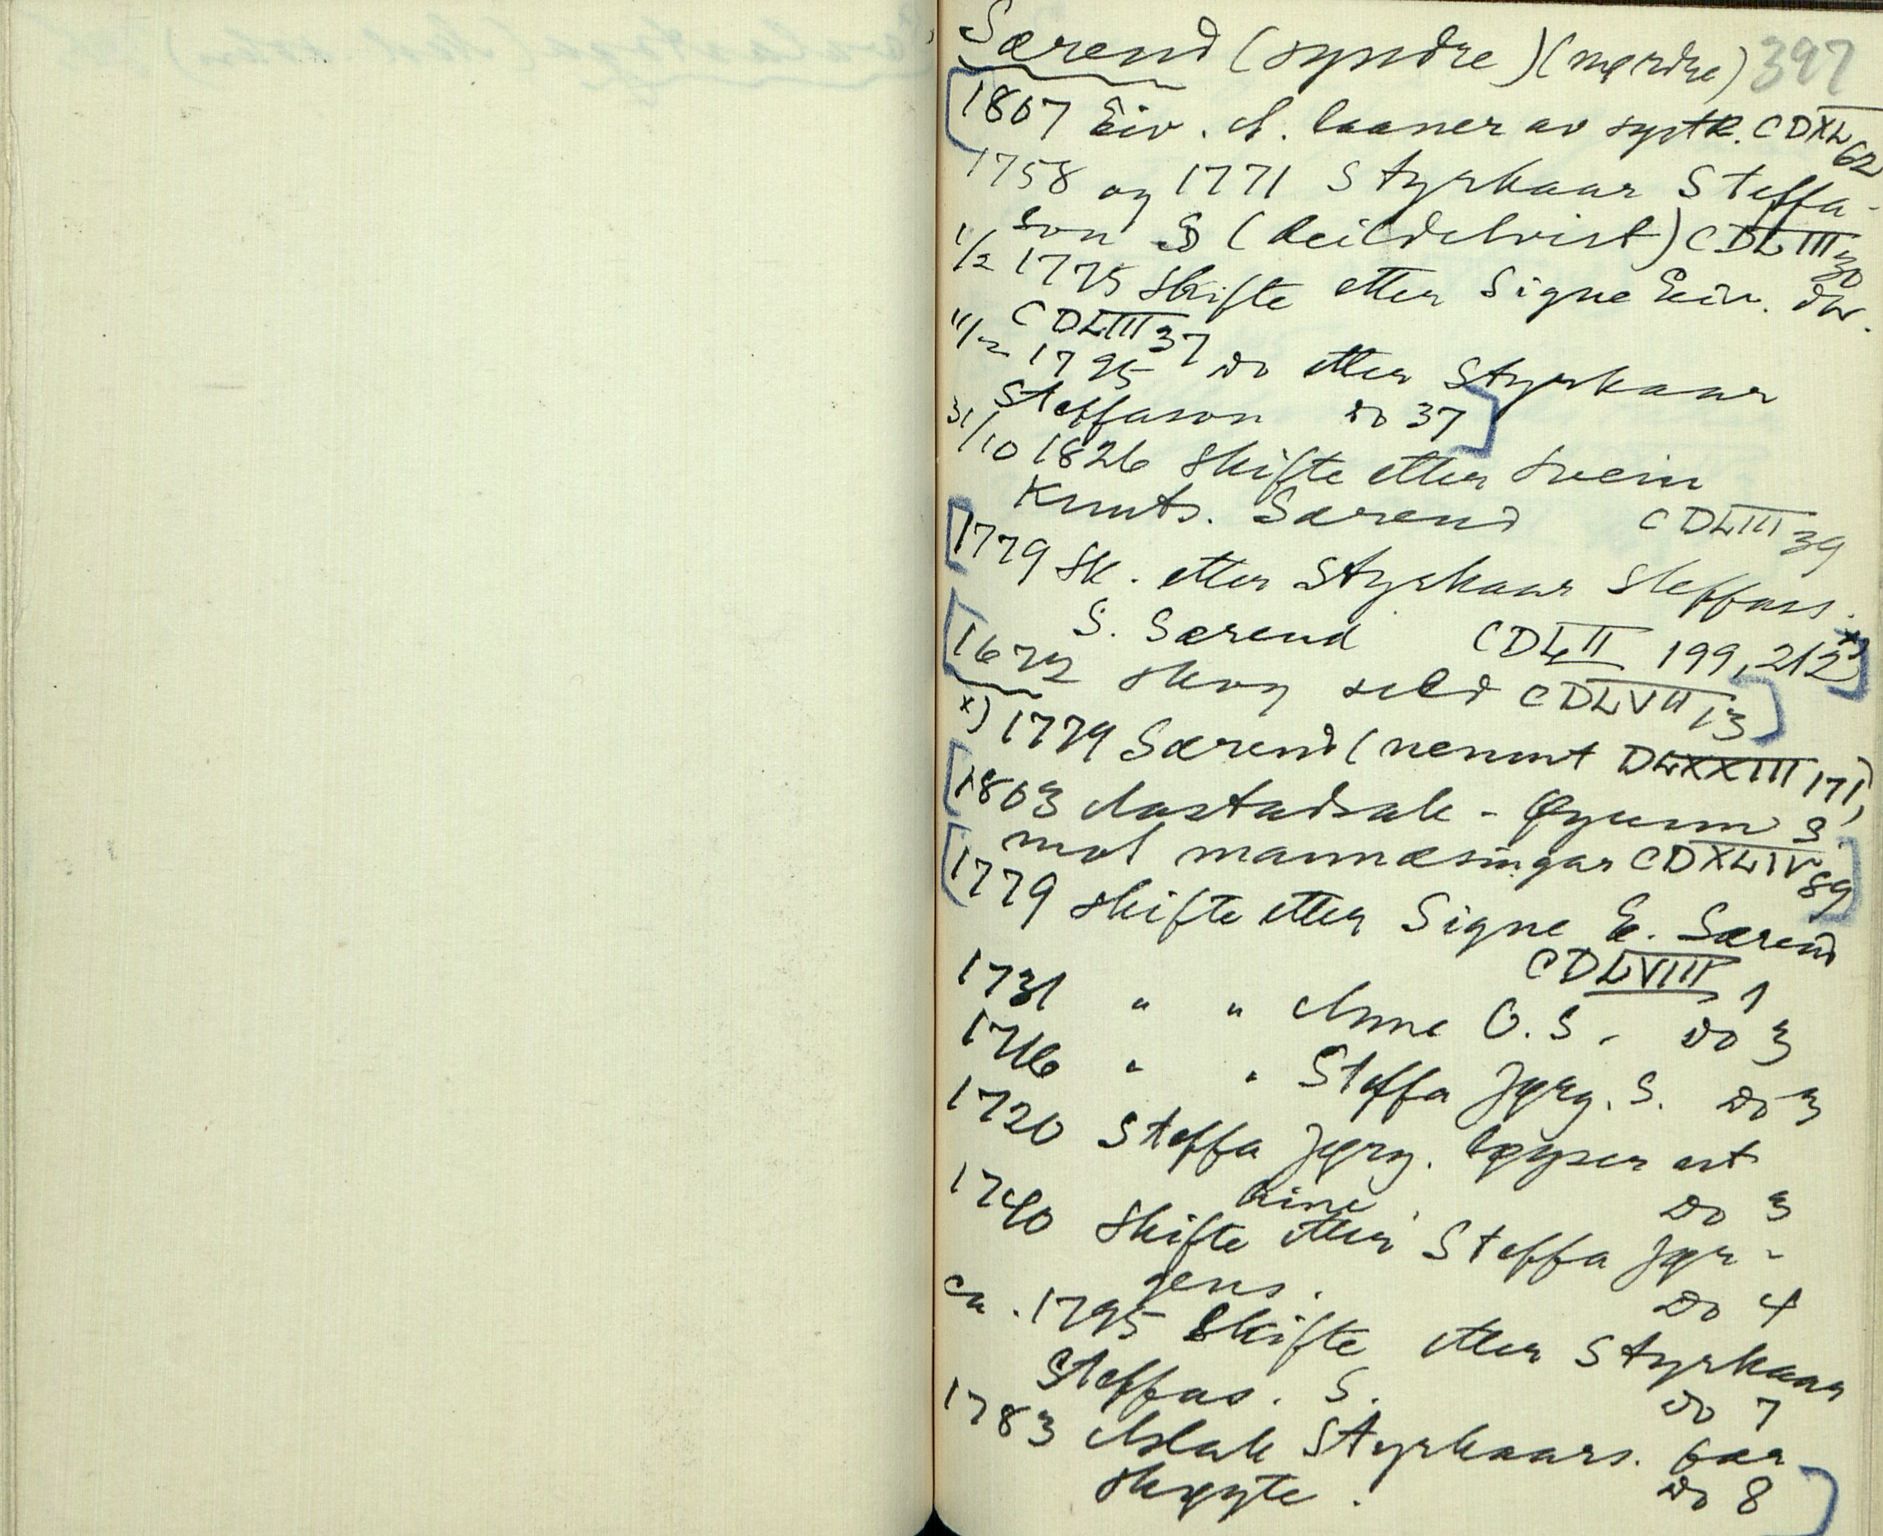 Særend (syndre) (nørdre) 397
[1807 Eiv. A. laaner av systk. CDXL 62
1758 og 1771 Styrkaar Steffa-
son S (deildelvist) CDLIII 30
1/2 1775 Skifte etter Signe Eiv. dtr.
CDLIII 37
11/2 1795 Do etter Styrkaar
Steffason Do 37]
31/10 1826 Skifte etter Svein
Knuts. Særend CDLIII 39
[1779 Sk. etter Styrkaar Steffass.
S. Særend CDLII 199, 212 x)]
[1672 skog seld CDLVII 13]
x) 1779 Særend (nemnt DLXXIII 171)
[1803 Aastadsak - Øyunn S.
mot mannæsingar CDXLIV 89]
[1779 skifte etter Signe E. Særend
CDLVIII 1
1731 " " Anne O. S. Do 3
1716 " " Steffa Jørg. S. Do 3
1720 Steffa Jørg. løyser ut
sine Do 3
1740 Skifte etter Steffa Jør-
gens. Do 4
ca. 1795 Skifte etter Styrkaar
Steffas. S. Do 7
1783 Aslak Styrkaars. faar
skøyte. Do 8]